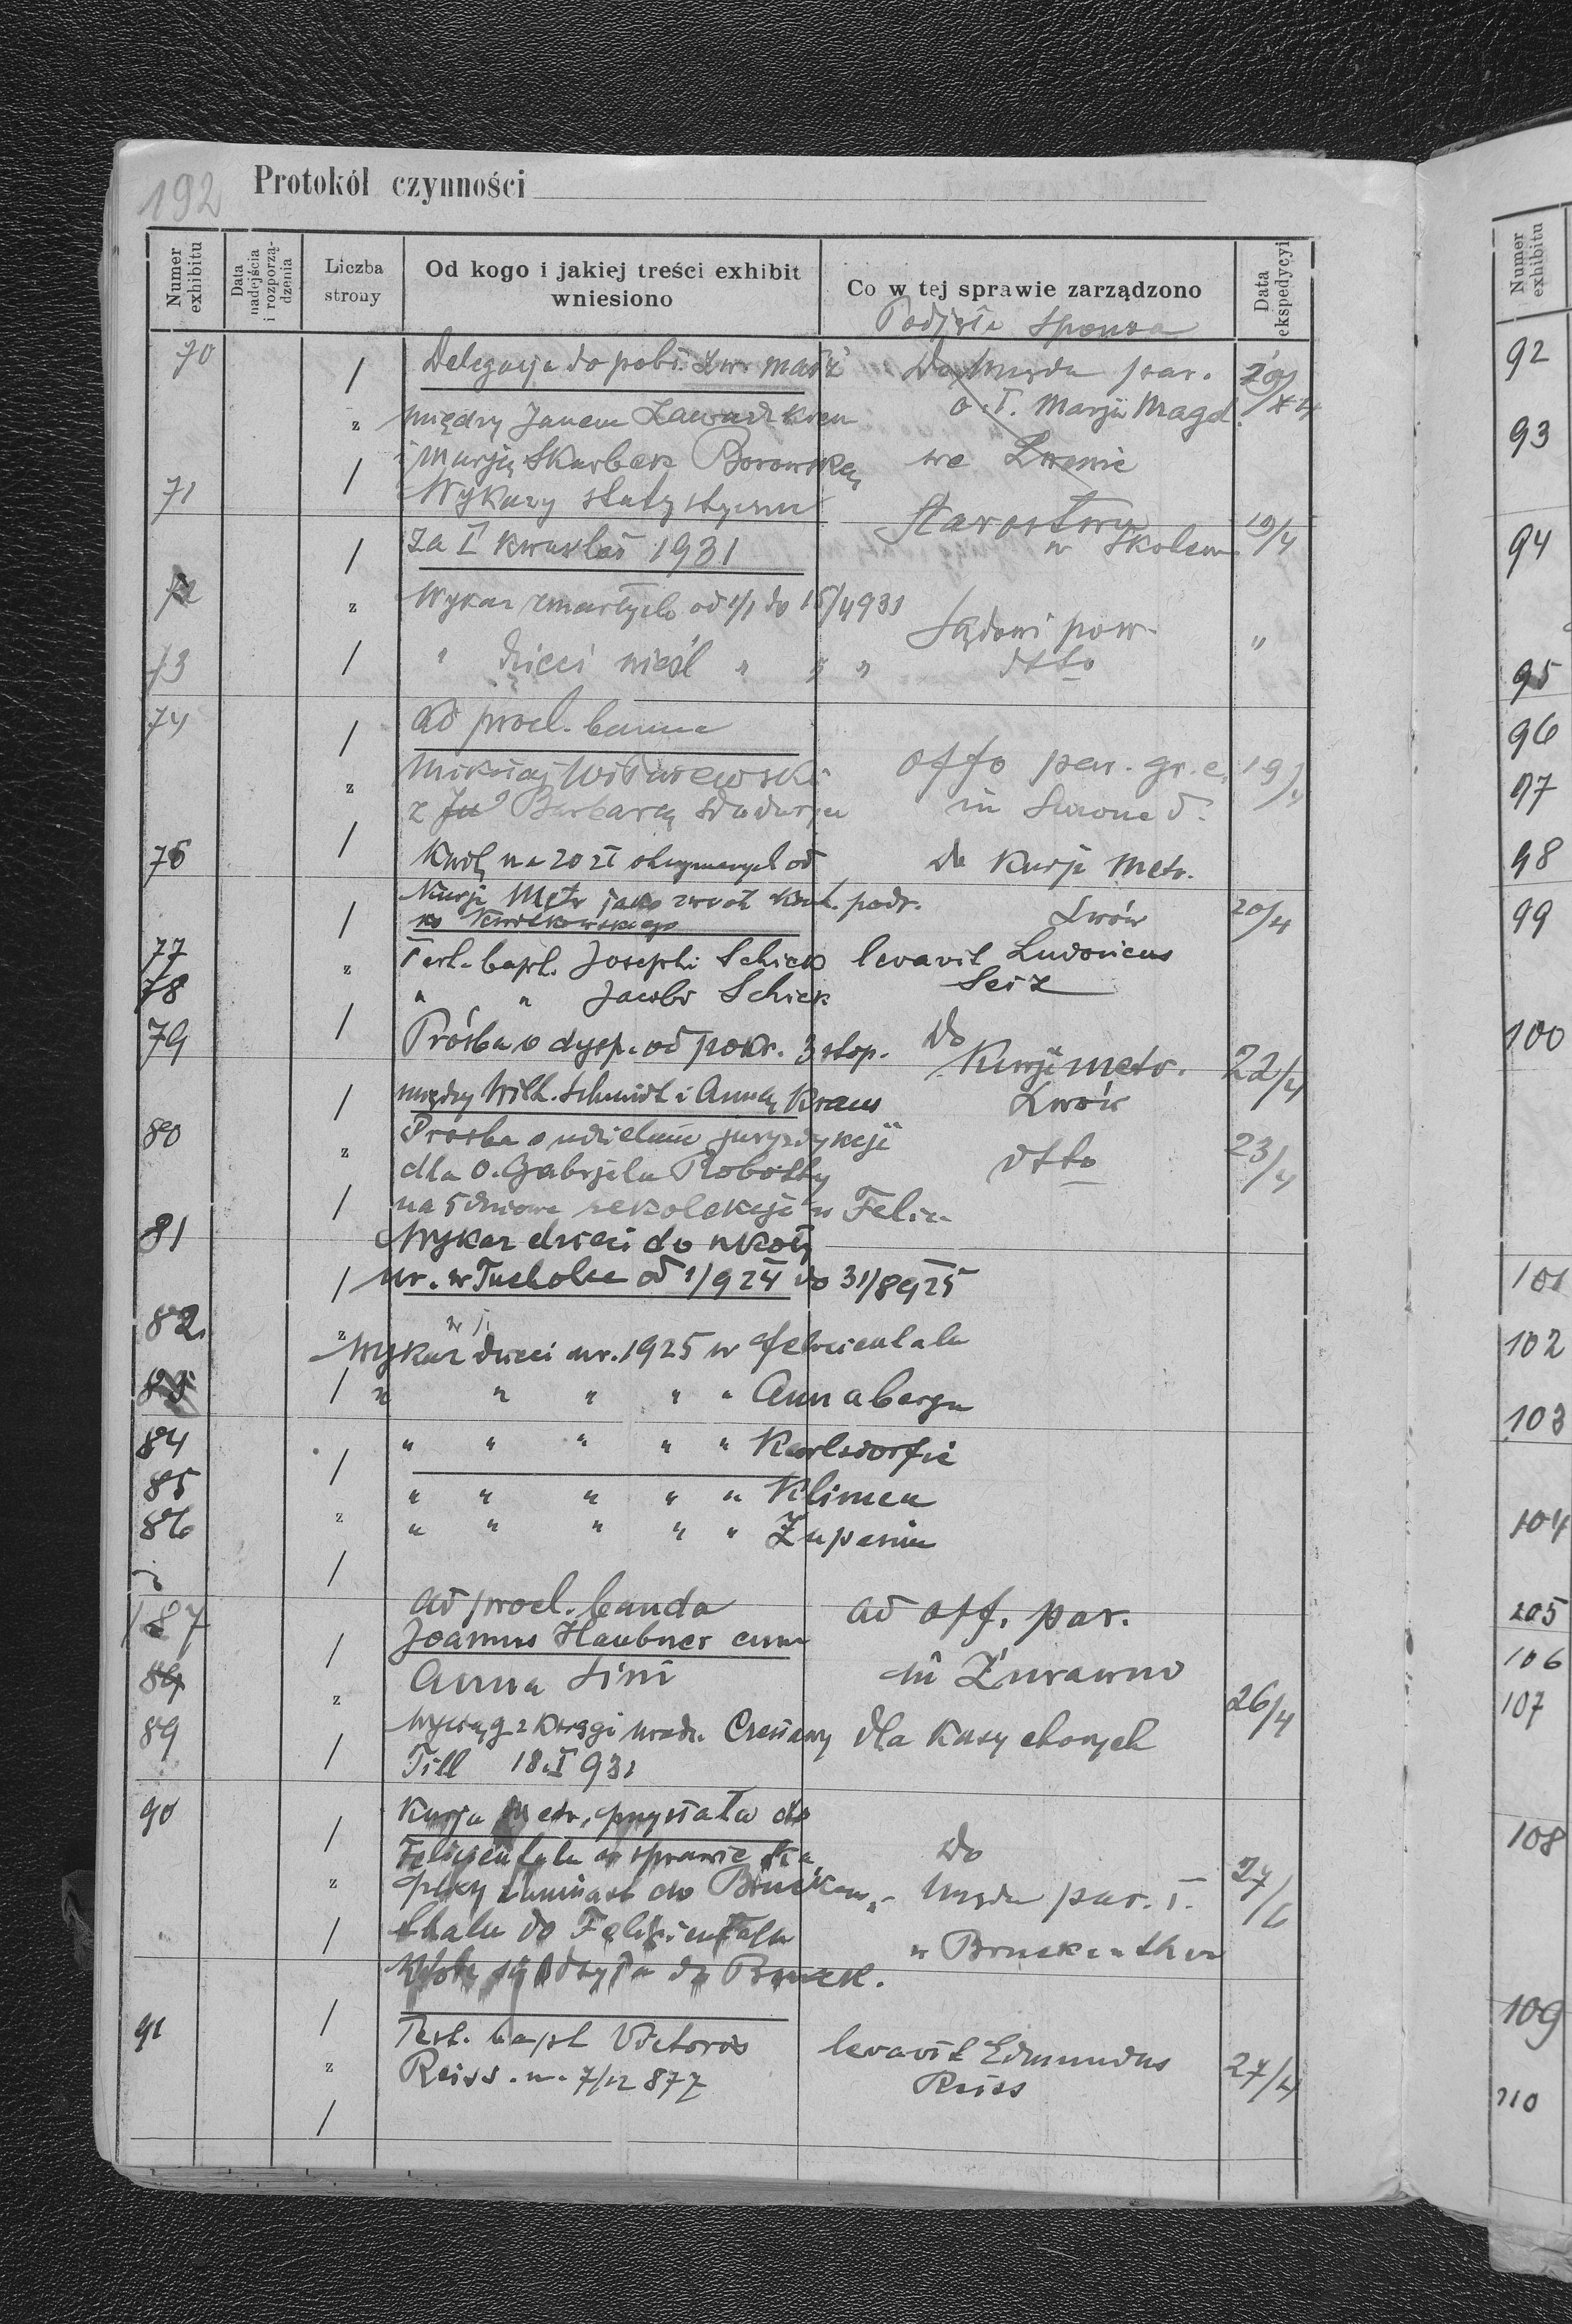 192 Protokół czynności
Numer exhibitu
Data nadejścia i rozporządzenia
Liczba strony
Od kogo i jakiej treści exhibit wniesiono
Co w tej sprawie zarządzono
Data ekspedycyi
Podjęła sponsa
70 Delegacja do pobł. zw. małż Do Urzędu par. 20/4
między Janem Zawadzkiem o. ł. Marji Magd.
i Marją Skarbek Borowską we Lwowie
71 Wykazy statystyczne Starostwu 19/4
za I kwartał 1931 w Skolem
72 Wykaz zmarłych od 1/1 do 15/4 931 Sądowi pow. "
73 " dzieci nieśl " " " dtto
74 Ad procl. banna
Mikołaj offo par. gr. c. 19/4
z Barbarą in
76 Kwit na 20 zł otrzymanych od do Kurji Metr.
Kurji Metr jako zwrot podr. Lwów 20/4
77 Test. bapt. Josephi Schick levavit Ludovicus
78 " " Jacobi Schick Seiz
79 Prośba o dysp. od pokr. 3 stop. Do Kurji metr. 22/4
między Wilh. Schmidt i Anną Kraus Lwów
80 Prośba o udzielenie jurysdykcji dtto 23/4
dla O. Gabrjela Robotky
na 5 dniowe rekolekcje w Felic.
81 Wykaz dzieci do szkoły
ur. w Tucholce od 1/9 24 do 31/8 925
82. Wykaz dzieci ur. 1925 w Felicientalu
83 " " " " " Annabergu
84 " " " " " Karlsdorfie
85 " " " " " Klimcu
86 " " " " " Żupaniu
87 Ad procl. banda ad off. par.
Joannus Haubner cum
Anna Lini in Żurawno
89 Wyciąg z księgi urodz. dla Kasy chorych 26/4
Till 18.I 931
90 Kurja Metr. przysłała do
Felicientalu w sprawie Do 27/
zamiast do Urzędu par. ł.
thalu do Felizientalu w Bruckenthalu
91 Test. bapt Victoris levavit Edmundus
Reiss. n. 7/12 877 Reiss 27/4
Numer exhibitu
92
93
94
95
96
97
98
99
100
101
102
103
104
105
106
107
108
109
110